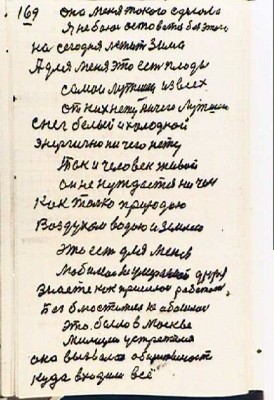 169 она меня такого сделала
Я не был остовата без этого
на сегодня летит Зима
А для меня это ест плоды
самои лутшии из всех
от них нету ничего лутши
снег белый и холодной
энергично ничего нету
Так и человек живой
он не нуждается ни чем
Как только природою
Воздухом водою и землею
Это ест для меня
Любимое неумераемое друзя
Знаете как пришлос работат
Бог в милостию
Это было в Москве
Милиция устретила
она вызвала
Куда входит всё